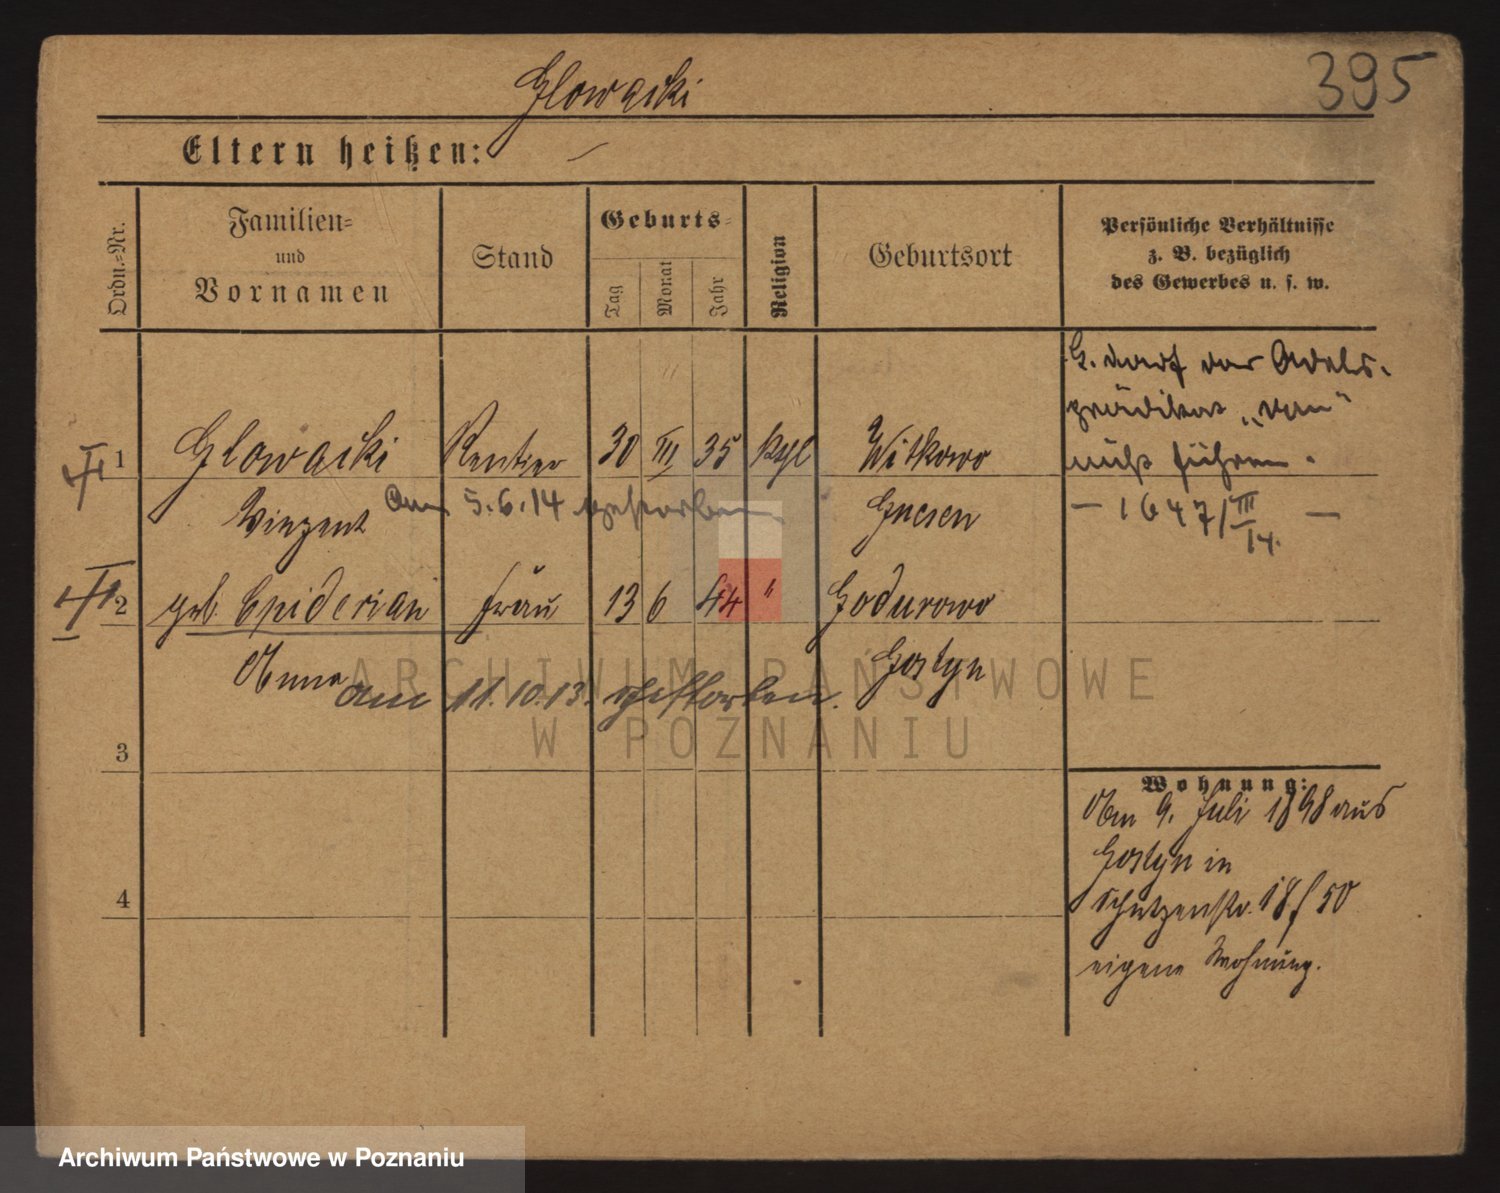 Glowacki
395
Eltern heißen: —
Ordn.=Nr.
Familien=
und
Vornamen
Stand
Geburts=
Tag
Monat
Jahr
Religion
Geburtsort
Persönliche Verhältnisse
z. B. bezüglich
des Gewerbes u. s. w.
G. darf das Adels-
prädikat „von“
nicht führen.
— 1647/III 14. —
1 Glowacki Rentier 30 III 35 Kath Witkowo
Vinzent Gnesen
am 5.6.14 gestorben
2 geb. Frau 13 6 44 " Godurowo
Anna Gostyn
am 11.10.13. gestorben.
3
4
Wohnung:
Am 9. Juli 1898 aus
Gostyn in
Schützenstr. 18 f 50
eigene Wohnung.
ARCHIWUM PAŃSTWOWE
W POZNANIU
Archiwum Państwowe w Poznaniu